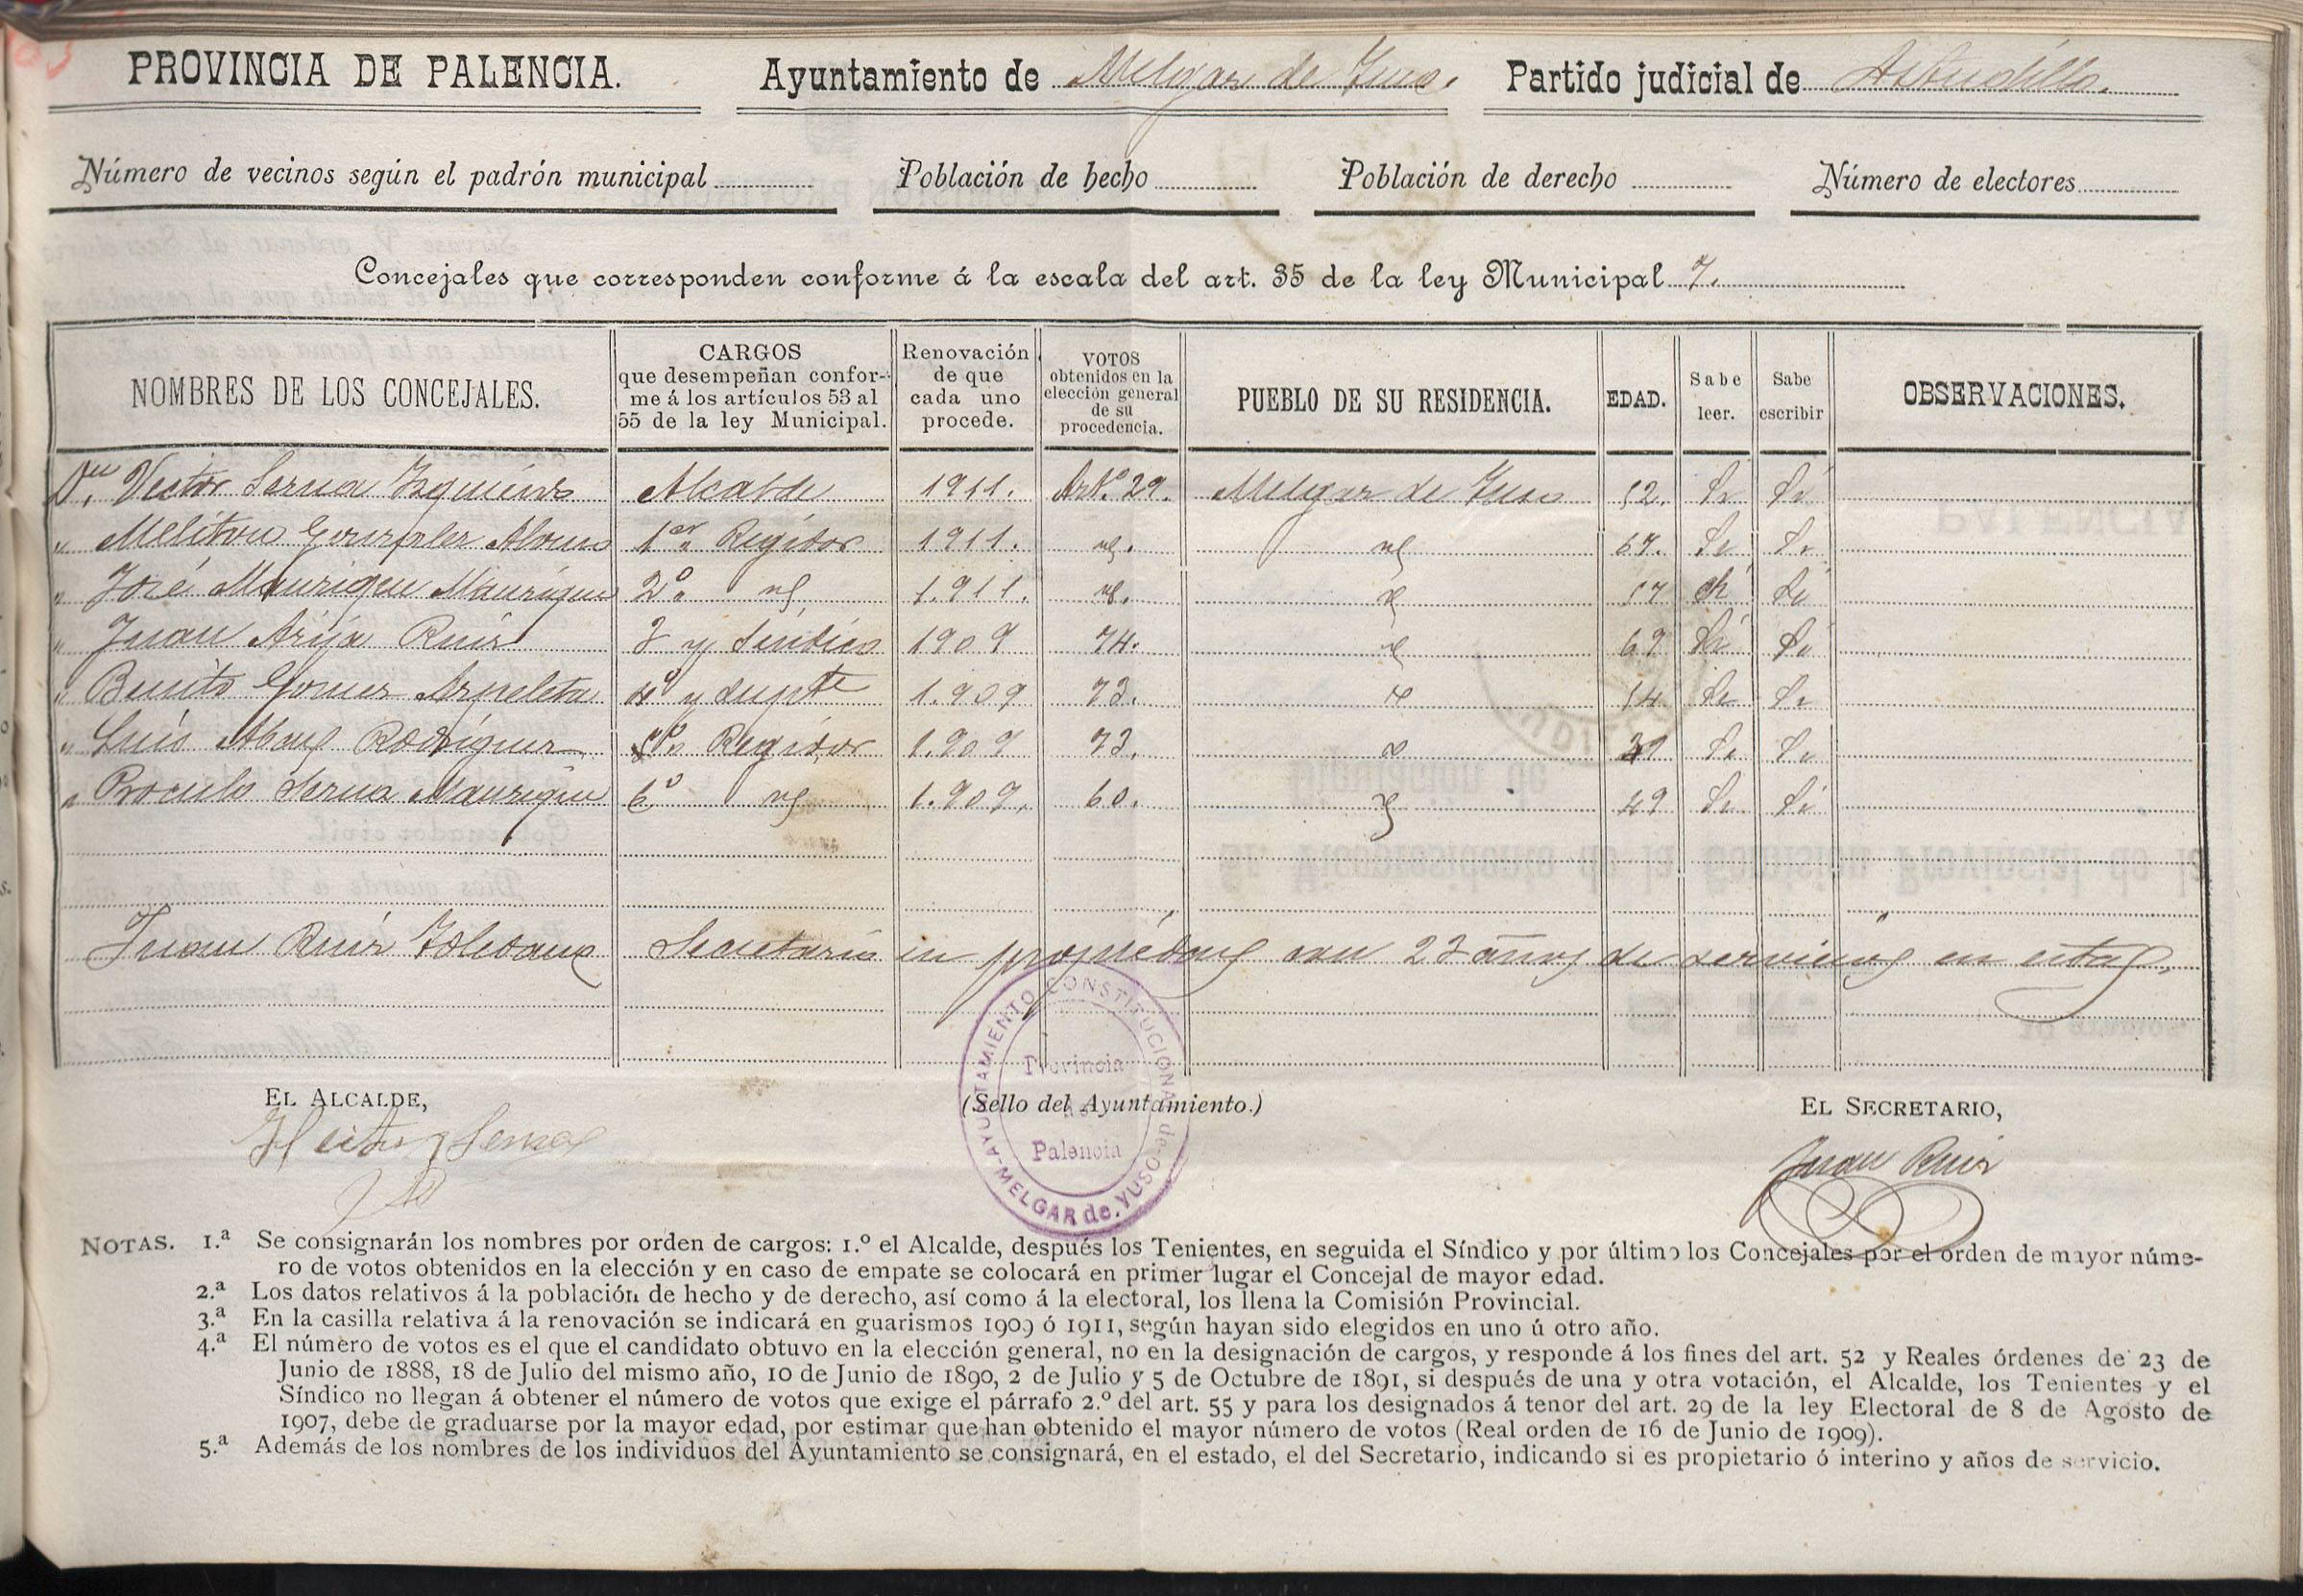 PROVINCIA DE PALENCIA. Ayuntamiento de Melgar de Yuso. Partido judicial de Astudillo.
Número de vecinos según el padrón municipal Población de hecho Población de derecho Número de electores
Concejales que corresponden conforme á la escala del art. 35 de la ley Municipal 7.
NOMBRES DE LOS CONCEJALES. CARGOS que desempeñan confor-me á los artículos 53 al 55 de la ley Municipal. Renovación de que cada uno procede. VOTOS obtenidos en la elección general de su procedencia. PUEBLO DE SU RESIDENCIA. EDAD. Sabe leer. Sabe escribir OBSERVACIONES.
Dn. Victor Serna Izquierdo Alcalde 1911. Art.º 29. Melgar de Yuso 52. Si Si
" Meliton Gonzalez Alonso 1er Regidor 1911. 67. Si Si
" José Manrique Manrique 2º 1.911. 57 Si
" Juan Arija Ruiz 3 y Sindico 1909 74. 69 Si Si
" Benito Gomez 4º y supte 1.909 73. 54 Si Si
" Luis Abad Rodriguez 5º Regidor 1.909 73. Si Si
" Proculo Serna Manrique 6º 1.909. 60. 49 Si Si
Juan Ruiz Toledano Secretario en propiedad con 23 años de servicios en esta
EL ALCALDE, (Sello del Ayuntamiento.) EL SECRETARIO,
Victor Serna
Juan Ruiz
AYUNTAMIENTO CONSTITUCIONAL de MELGAR de YUSO
Provincia de Palencia
NOTAS. 1.ª Se consignarán los nombres por orden de cargos: 1.º el Alcalde, después los Tenientes, en seguida el Síndico y por último los Concejales por el orden de mayor núme-
ro de votos obtenidos en la elección y en caso de empate se colocará en primer lugar el Concejal de mayor edad.
2.ª Los datos relativos á la población de hecho y de derecho, así como á la electoral, los llena la Comisión Provincial.
3.ª En la casilla relativa á la renovación se indicará en guarismos 1909 ó 1911, según hayan sido elegidos en uno ú otro año.
4.ª El número de votos es el que el candidato obtuvo en la elección general, no en la designación de cargos, y responde á los fines del art. 52 y Reales órdenes de 23 de
Junio de 1888, 18 de Julio del mismo año, 10 de Junio de 1890, 2 de Julio y 5 de Octubre de 1891, si después de una y otra votación, el Alcalde, los Tenientes y el
Síndico no llegan á obtener el número de votos que exige el párrafo 2.º del art. 55 y para los designados á tenor del art. 29 de la ley Electoral de 8 de Agosto de
1907, debe de graduarse por la mayor edad, por estimar que han obtenido el mayor número de votos (Real orden de 16 de Junio de 1909).
5.ª Además de los nombres de los individuos del Ayuntamiento se consignará, en el estado, el del Secretario, indicando si es propietario ó interino y años de servicio.